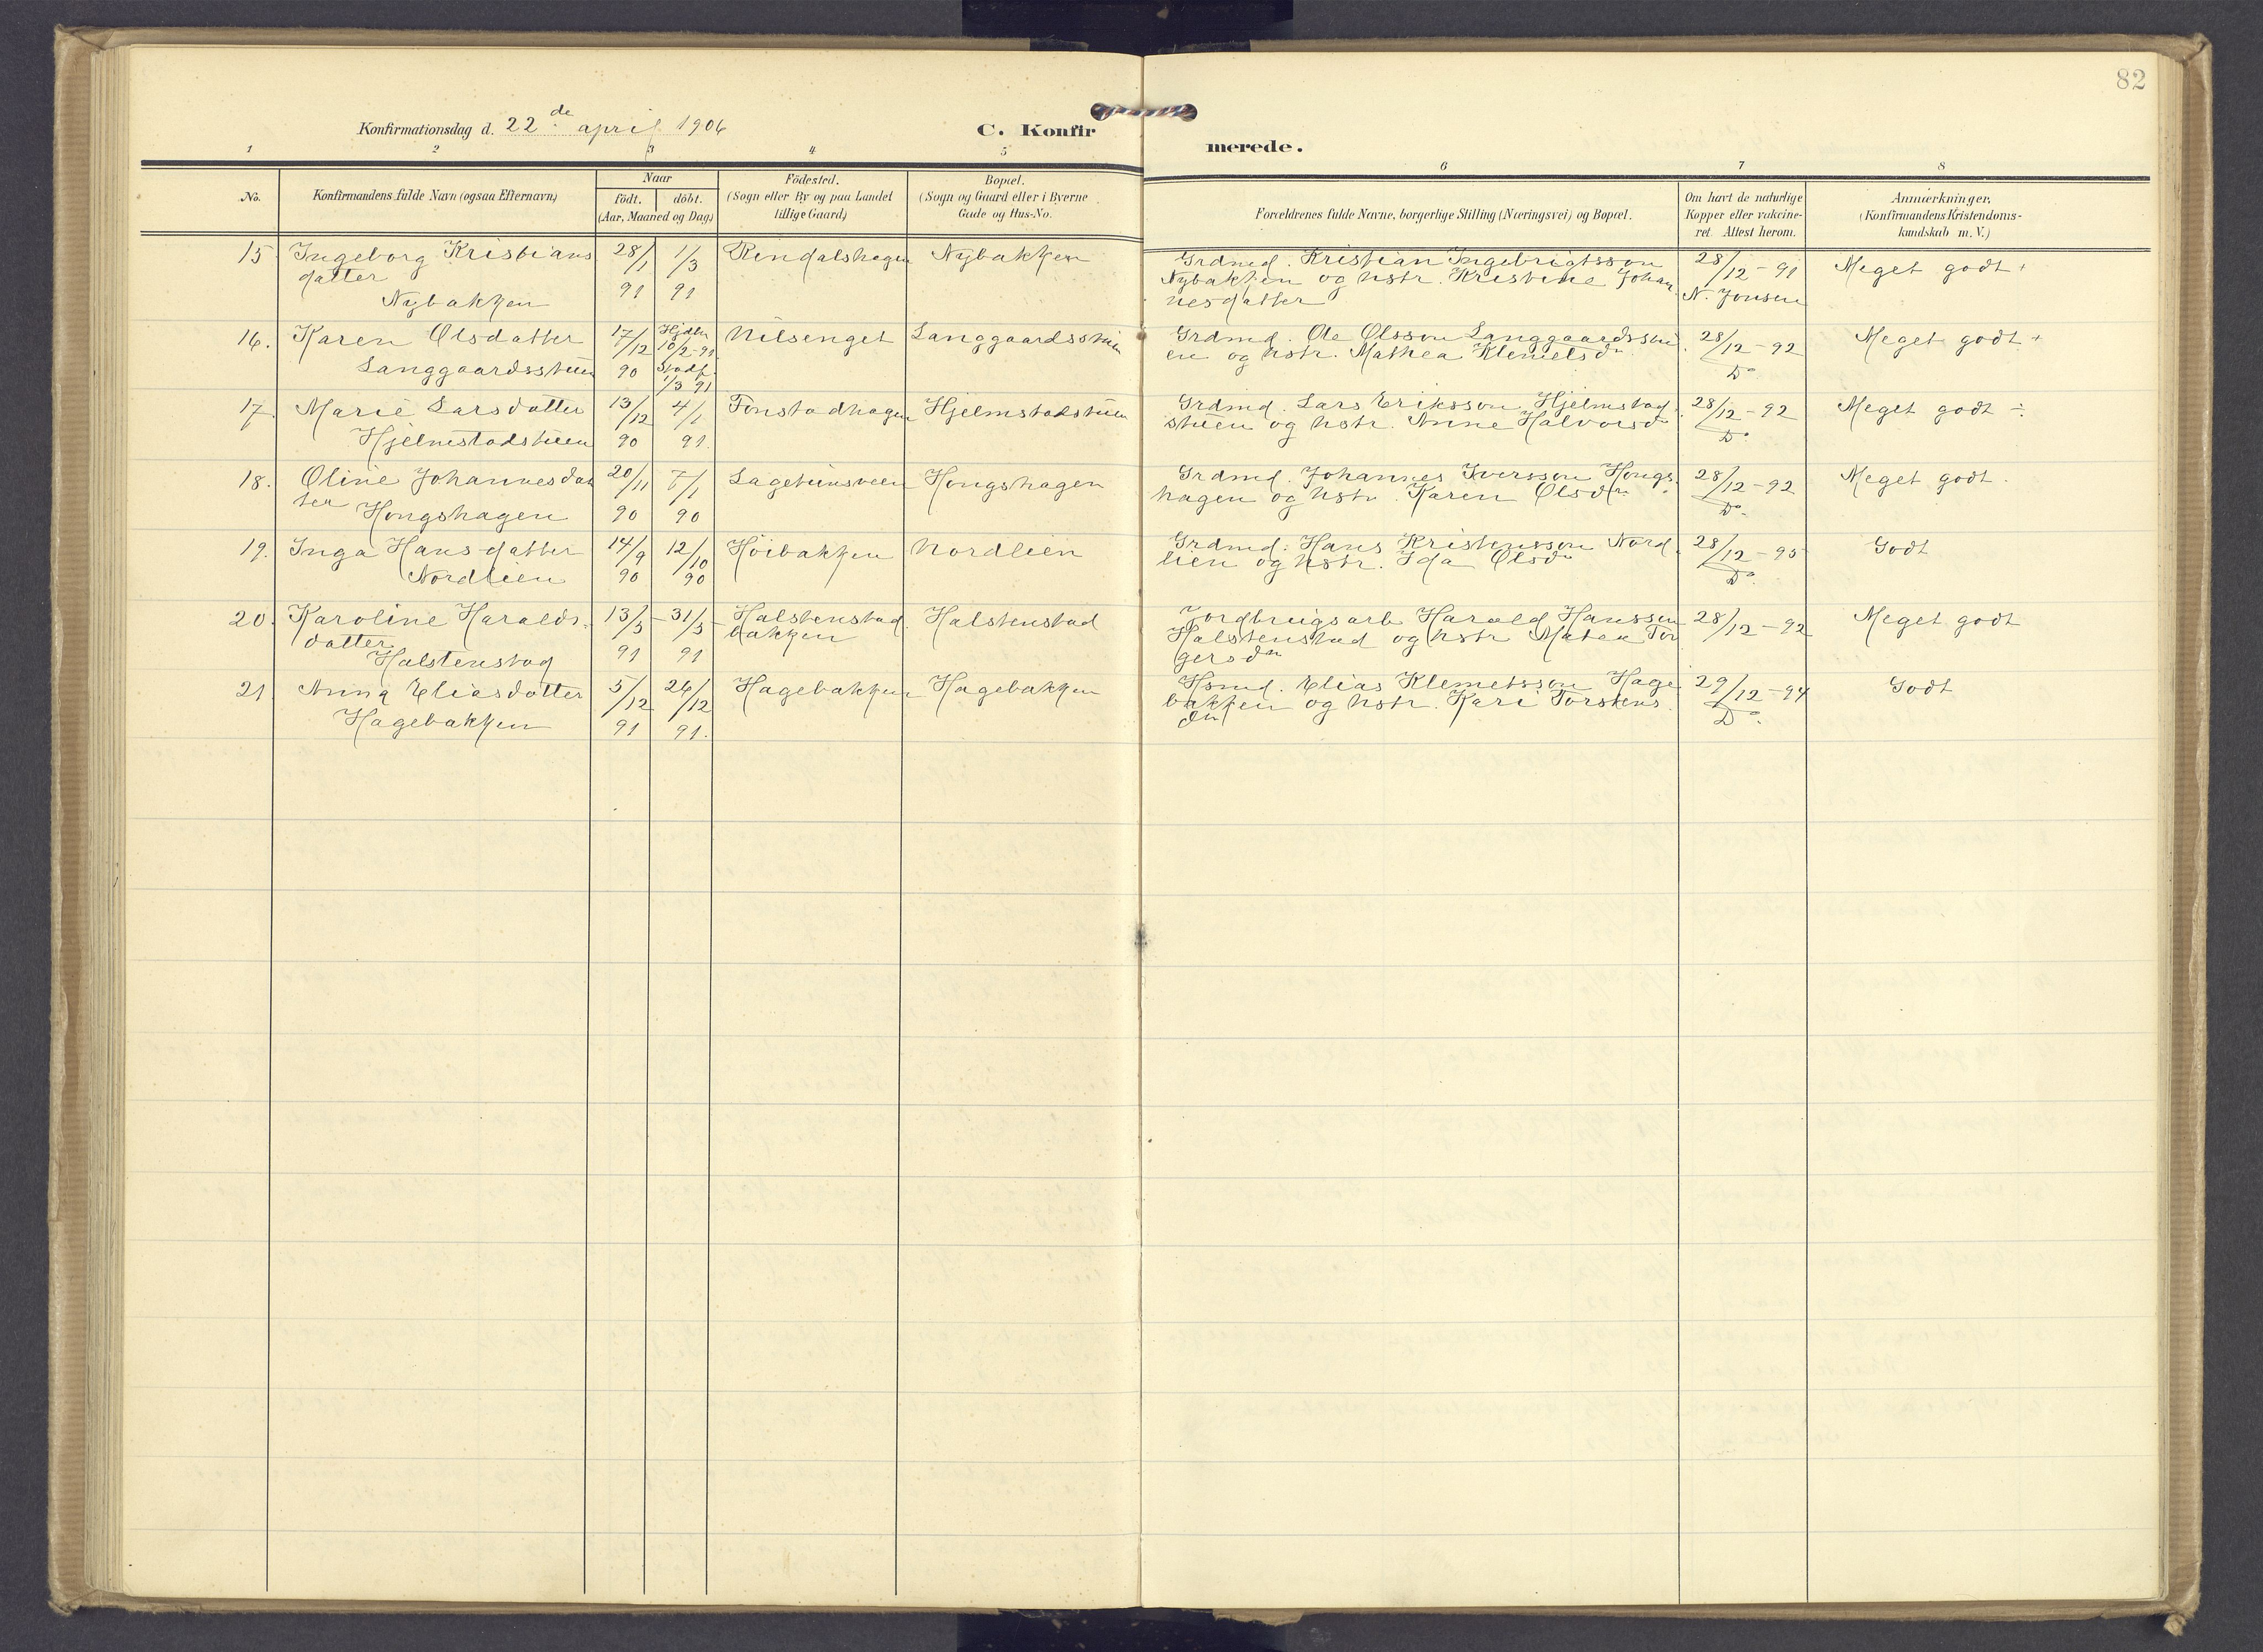 82
Konfirmationsdag d. 22de april 1906
C. Konfirmerede.
1 2 3 4 5 6 7 8
No.
Konfirmandens fulde Navn (ogsaa Efternavn)
Naar
födt. döbt.
(Aar, Maaned og Dag)
Födested.
(Sogn eller By og paa Landet
tillige Gaard)
Bopæl.
(Sogn og Gaard eller i Byerne
Gade og Hus-No.
Forældrenes fulde Navne, borgerlige Stilling (Næringsvei) og Bopæl.
Om havt de naturlige
Kopper eller vakcine-
ret. Attest herom.
Anmærkninger.
(Konfirmandens Kristendoms-
kundskab m. V.)
15 Ingeborg Kristians
datter
Nybakken
28/1 91
1/3 91
Rindalshagen
Nybakken
Grdmd. Kristian Ingebrigtsson
Nybakken og hstr. Kristine Johan
nesdatter
28/12-91
N. Jonsen
Meget godt +
16. Karen Olsdatter
Langgaardsstuen
17/12 90
Hjdbt
10/2-91
Stadf.
1/3 91
Nilsenget
Langgaardsstuen
Grdmd. Ole Olsson Langgaardsstu
en og hstr. Mathea Klemetsdr
28/12-92
Do
Meget godt +
17. Marie Larsdatter
Hjelmstadstuen
13/12 90
4/1 91.
Fonstadhagen
Hjelmstadstuen
Grdmd. Lars Eriksson Hjelmstad
stuen og hstr. Anne Halvorsdr
28/12-92
Do.
Meget godt ÷
18. Oline Johannesdat
ter
Hongshagen
20/11 90
7/1 90
Lagetunsveen
Hongshagen
Grdmd. Johannes Iversson Hongs
hagen og hstr. Karen Olsdr.
28/12-92
Do.
Meget godt.
19. Inga Hansdatter
Nordlien
14/9 90
12/10 90
Höibakken
Nordlien
Grdmd. Hans Kristensson Nord
lien og hstr. Ida Olsdr
28/12-95
Do.
Godt
20. Karoline Haralds-
datter
Halstenstad
13/3 91
31/5 91
Halstenstad
bakken
Halstenstad
Jordbrugsarb Harald Hanssen
Halstenstad og hstr Matea Tor
gersdtr
28/12-92
Meget godt
21 Anna Eliasdatter
Hagebakken
5/12 91
26/12 91.
Hagebakken
Hagebakken
Hsmd. Elias Klemetsson Hage
bakken og hstr. Kari Torstens
dtr
29/12-94
Do.
Godt